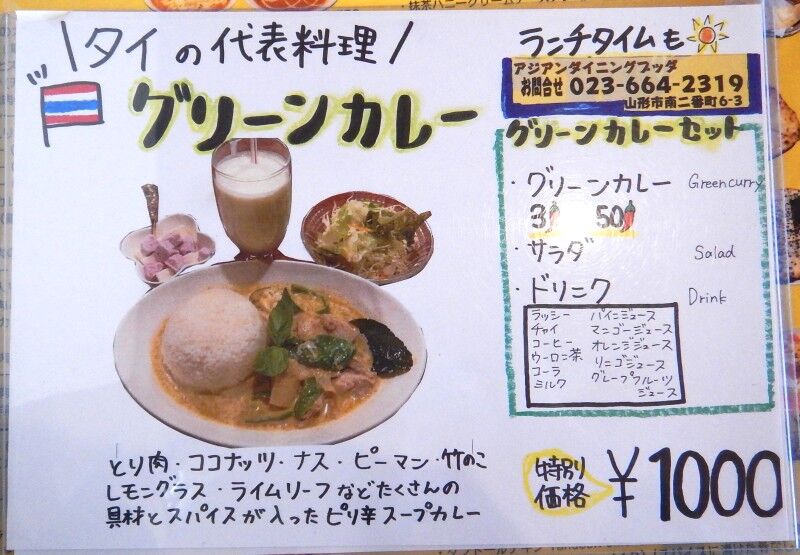 抹茶ハニークリームチーズ
\タイの代表料理/
グリーンカレー
ランチタイムも
アジアンダイニングブッダ
お問合せ 023-664-2319
山形市南二番町6-3
グリーンカレーセット
・グリーンカレー Greencurry
3 50
・サラダ Salad
・ドリニク Drink
ラッシー パイニジュース
チャイ マンゴージュース
コーヒー オレンジジュース
ウーロン茶 リニゴジュース
コーラ グレープフルーツ
ミルク ジュース
とり肉・ココナッツ・ナス・ピーマン・竹のこ
レモングラス・ライムリーフなどたくさんの
具材とスパイスが入ったピリ辛スープカレー
特別
価格 ¥1000